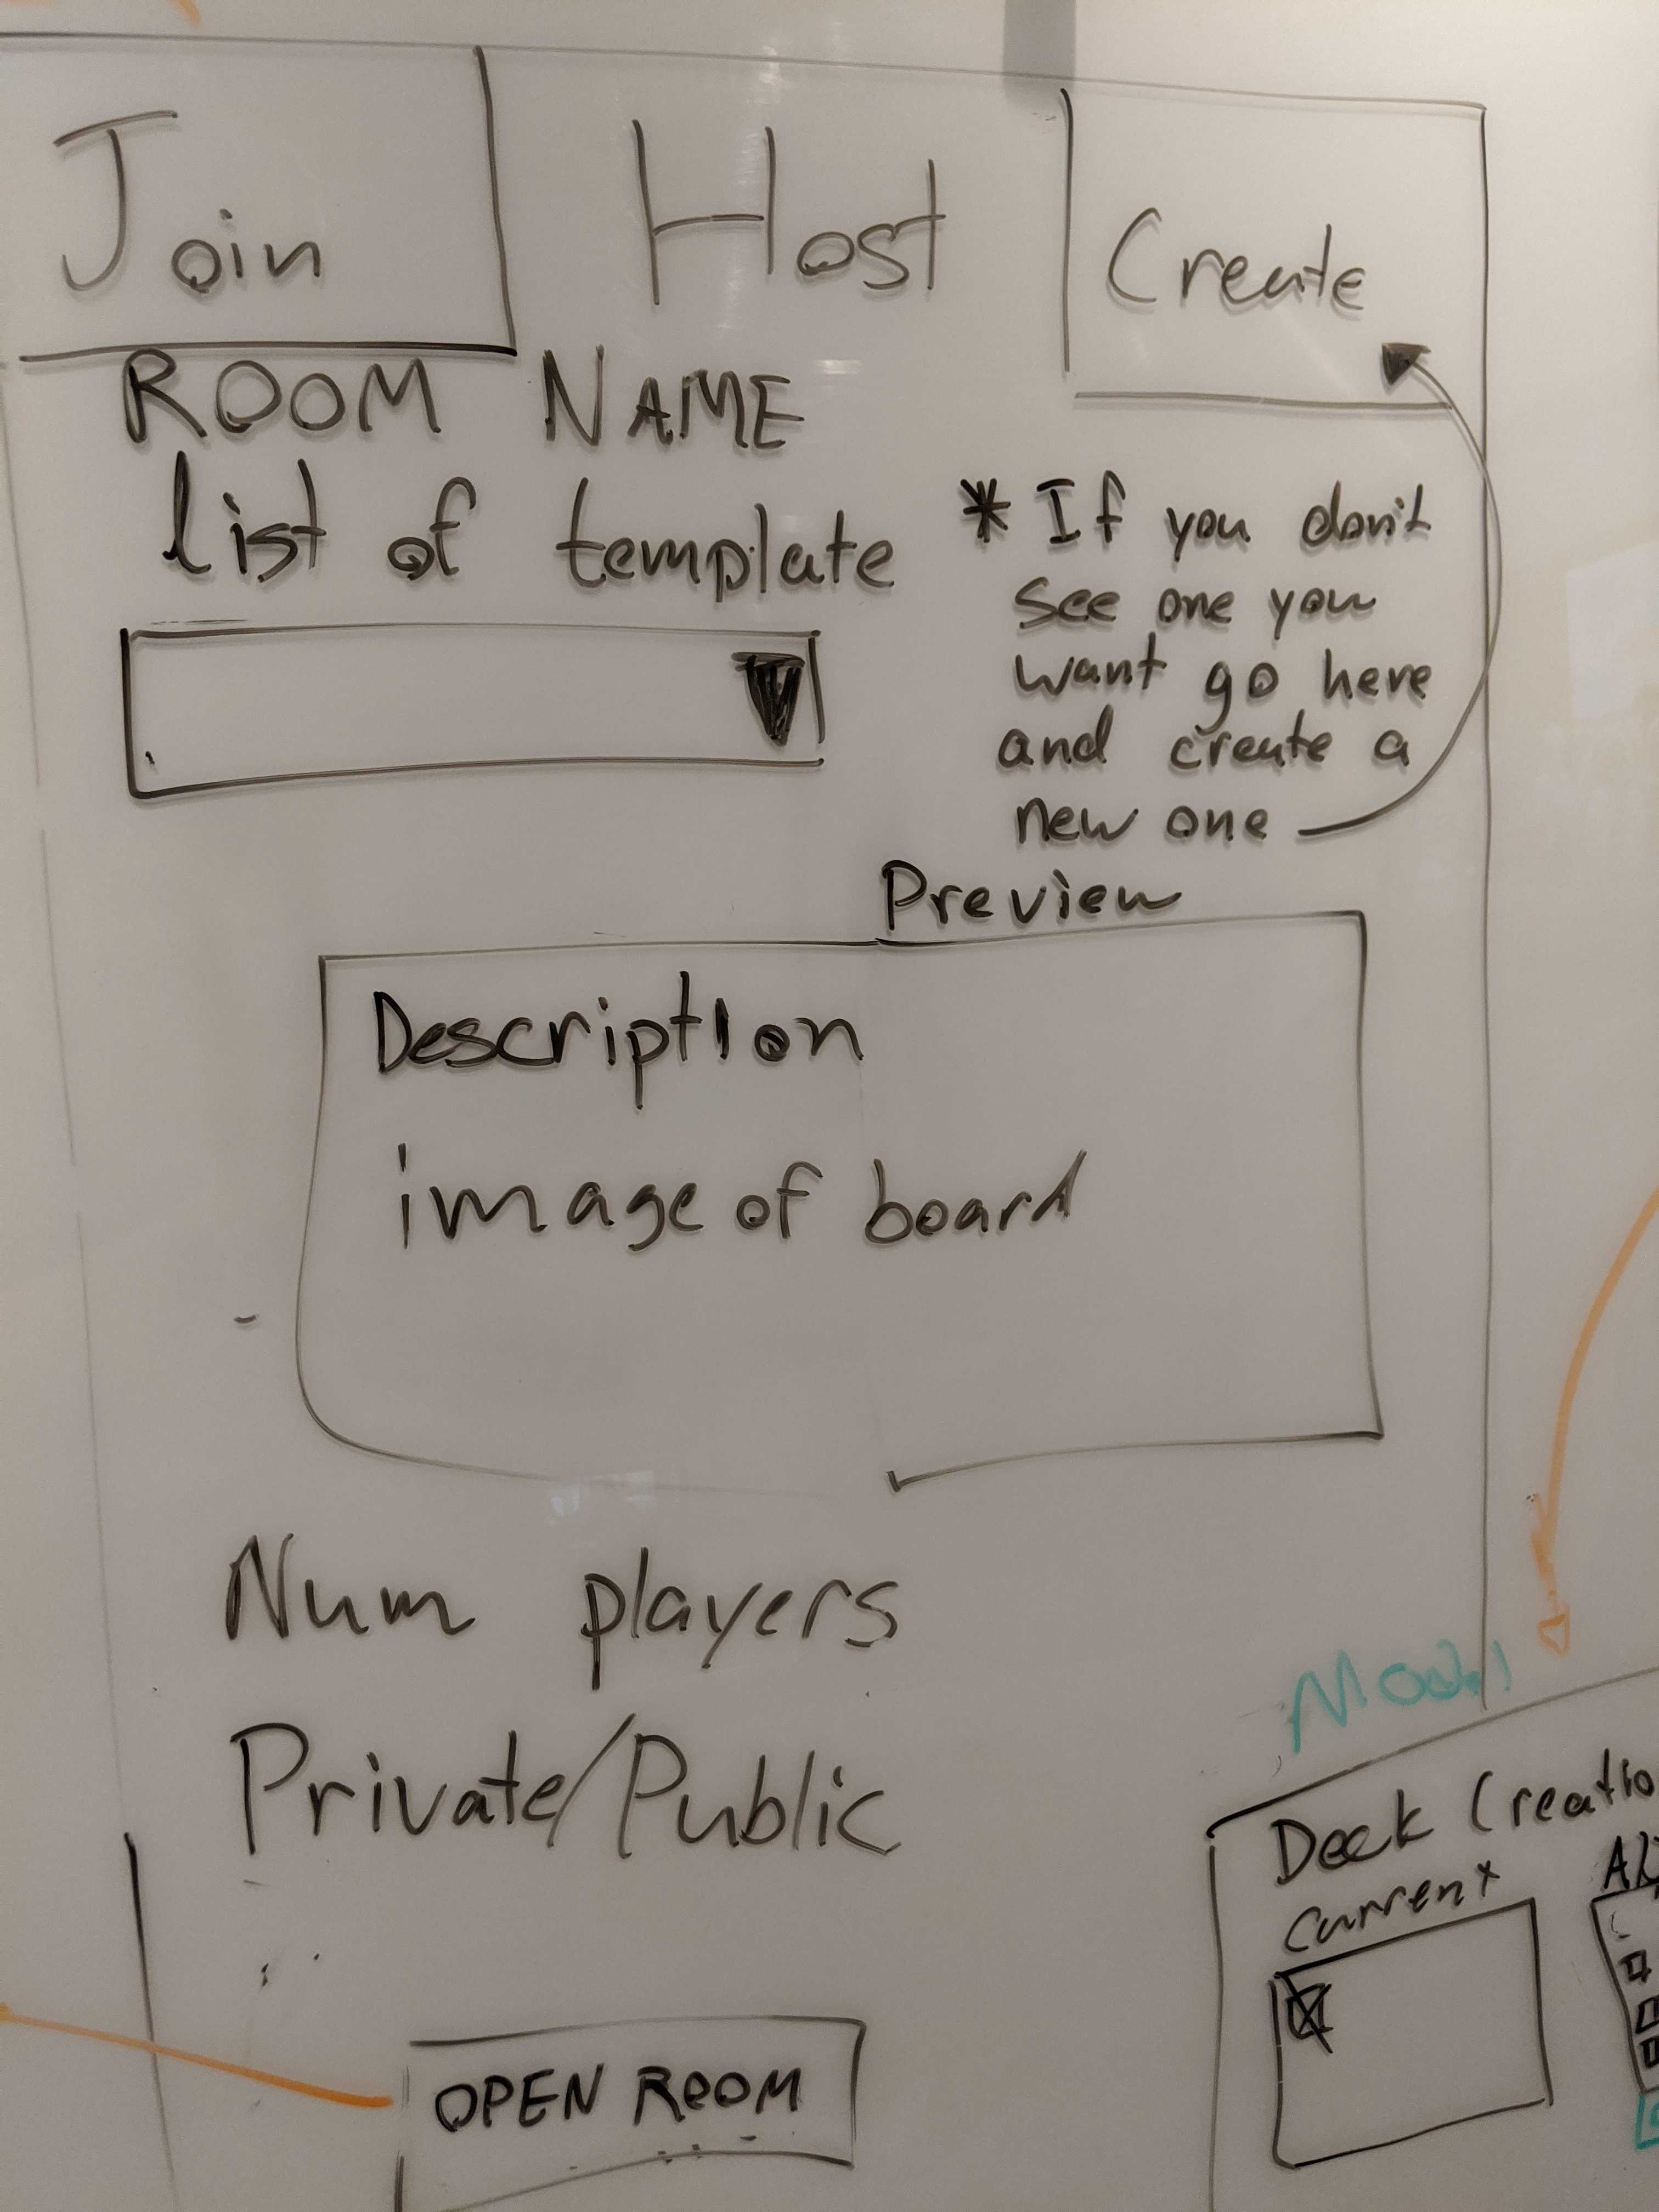 Join Host Create
ROOM NAME
list of template
* If you don't
see one you
want go here
and create a
new one
Preview
Description
image of board
Num players
Private/Public
OPEN ROOM
Modal
Deck Creatio
Current